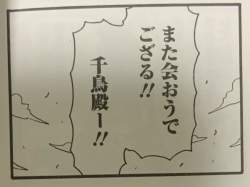 また会おうで
ござる!!
千鳥殿ー!!